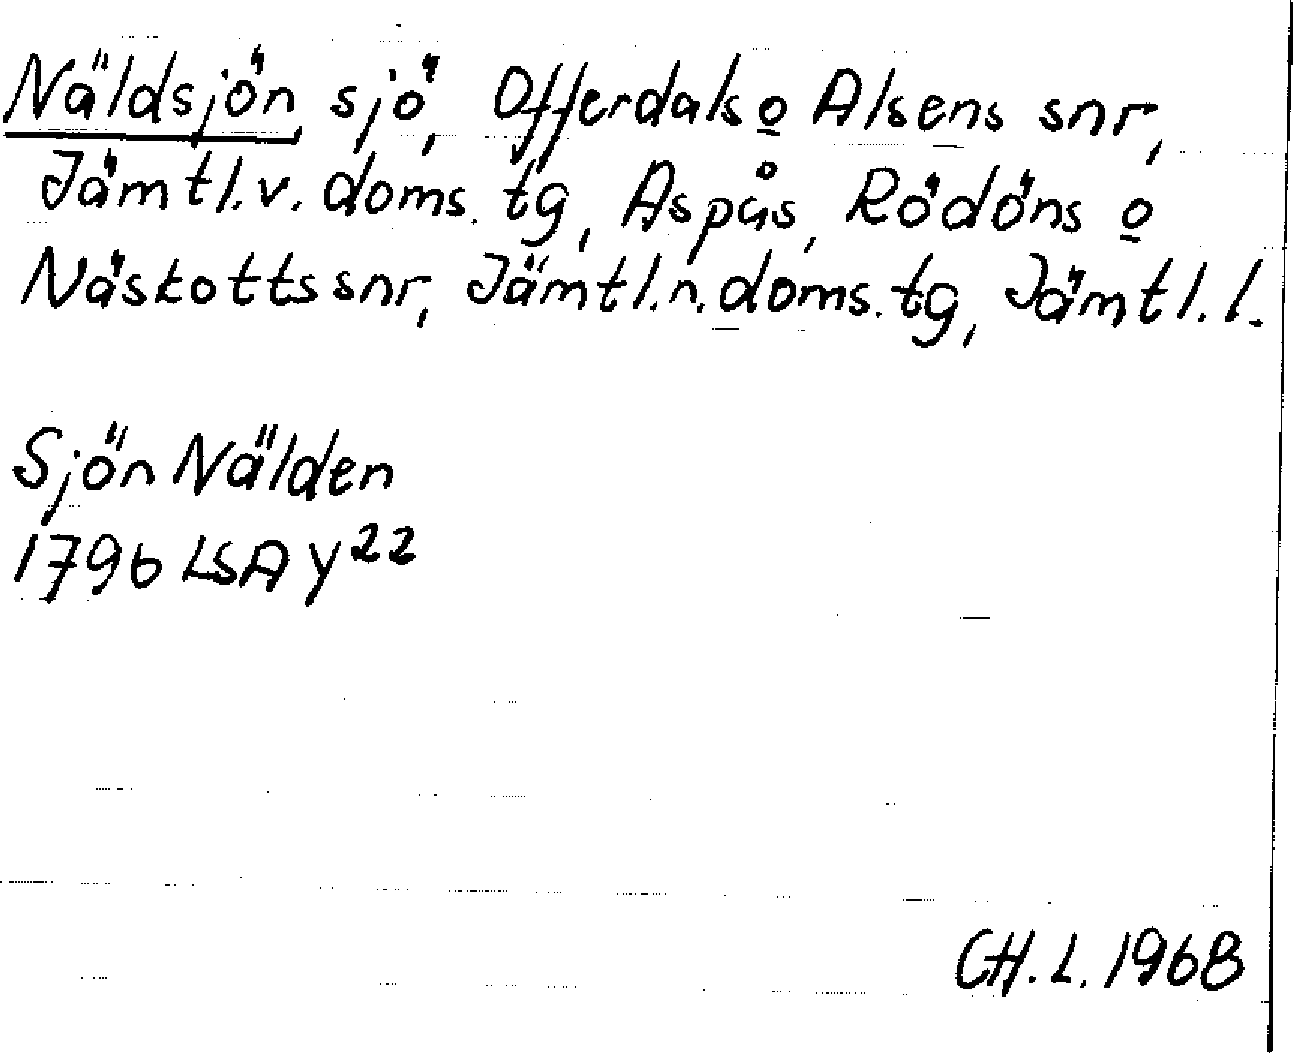 Näldsjön, sjö, Offerdals o Alsens snr,
Jämtl.v.doms.tg, Aspås, Rödöns o
Näskotts snr, Jämtl.n.doms.tg, Jämtl.l.
Sjön Nälden
1796 LSA Y22
CH.L.1968